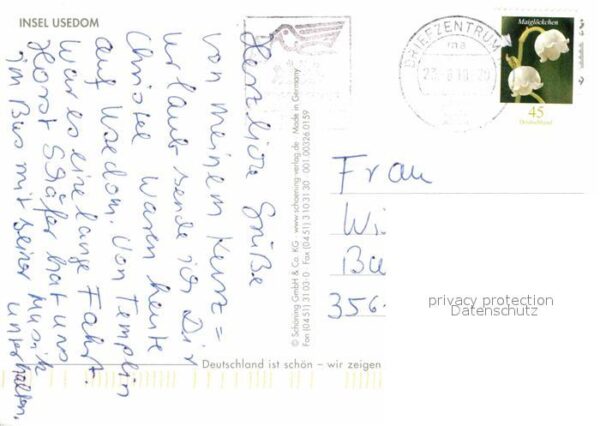 INSEL USEDOM
Herzliche Grüße
von meinem Kurz=
urlaub sende ich Dir
Christel waren heute
auf Usedom. Von Templin
war es eine lange Fahrt.
Horst Schäfer hat uns
im Bus mit seiner Musik
unterhalten.
© Schöning GmbH & Co. KG · www.schoening-verlag.de · Made in Germany
Fon (04 51) 31 03 0 · Fax (04 51) 3 10 31 30 · 001 00326 0159
BRIEFZENTRUM
ma
Maiglöckchen
45
Deutschland
Frau
Wi
356
privacy protection
Datenschutz
Deutschland ist schön – wir zeigen